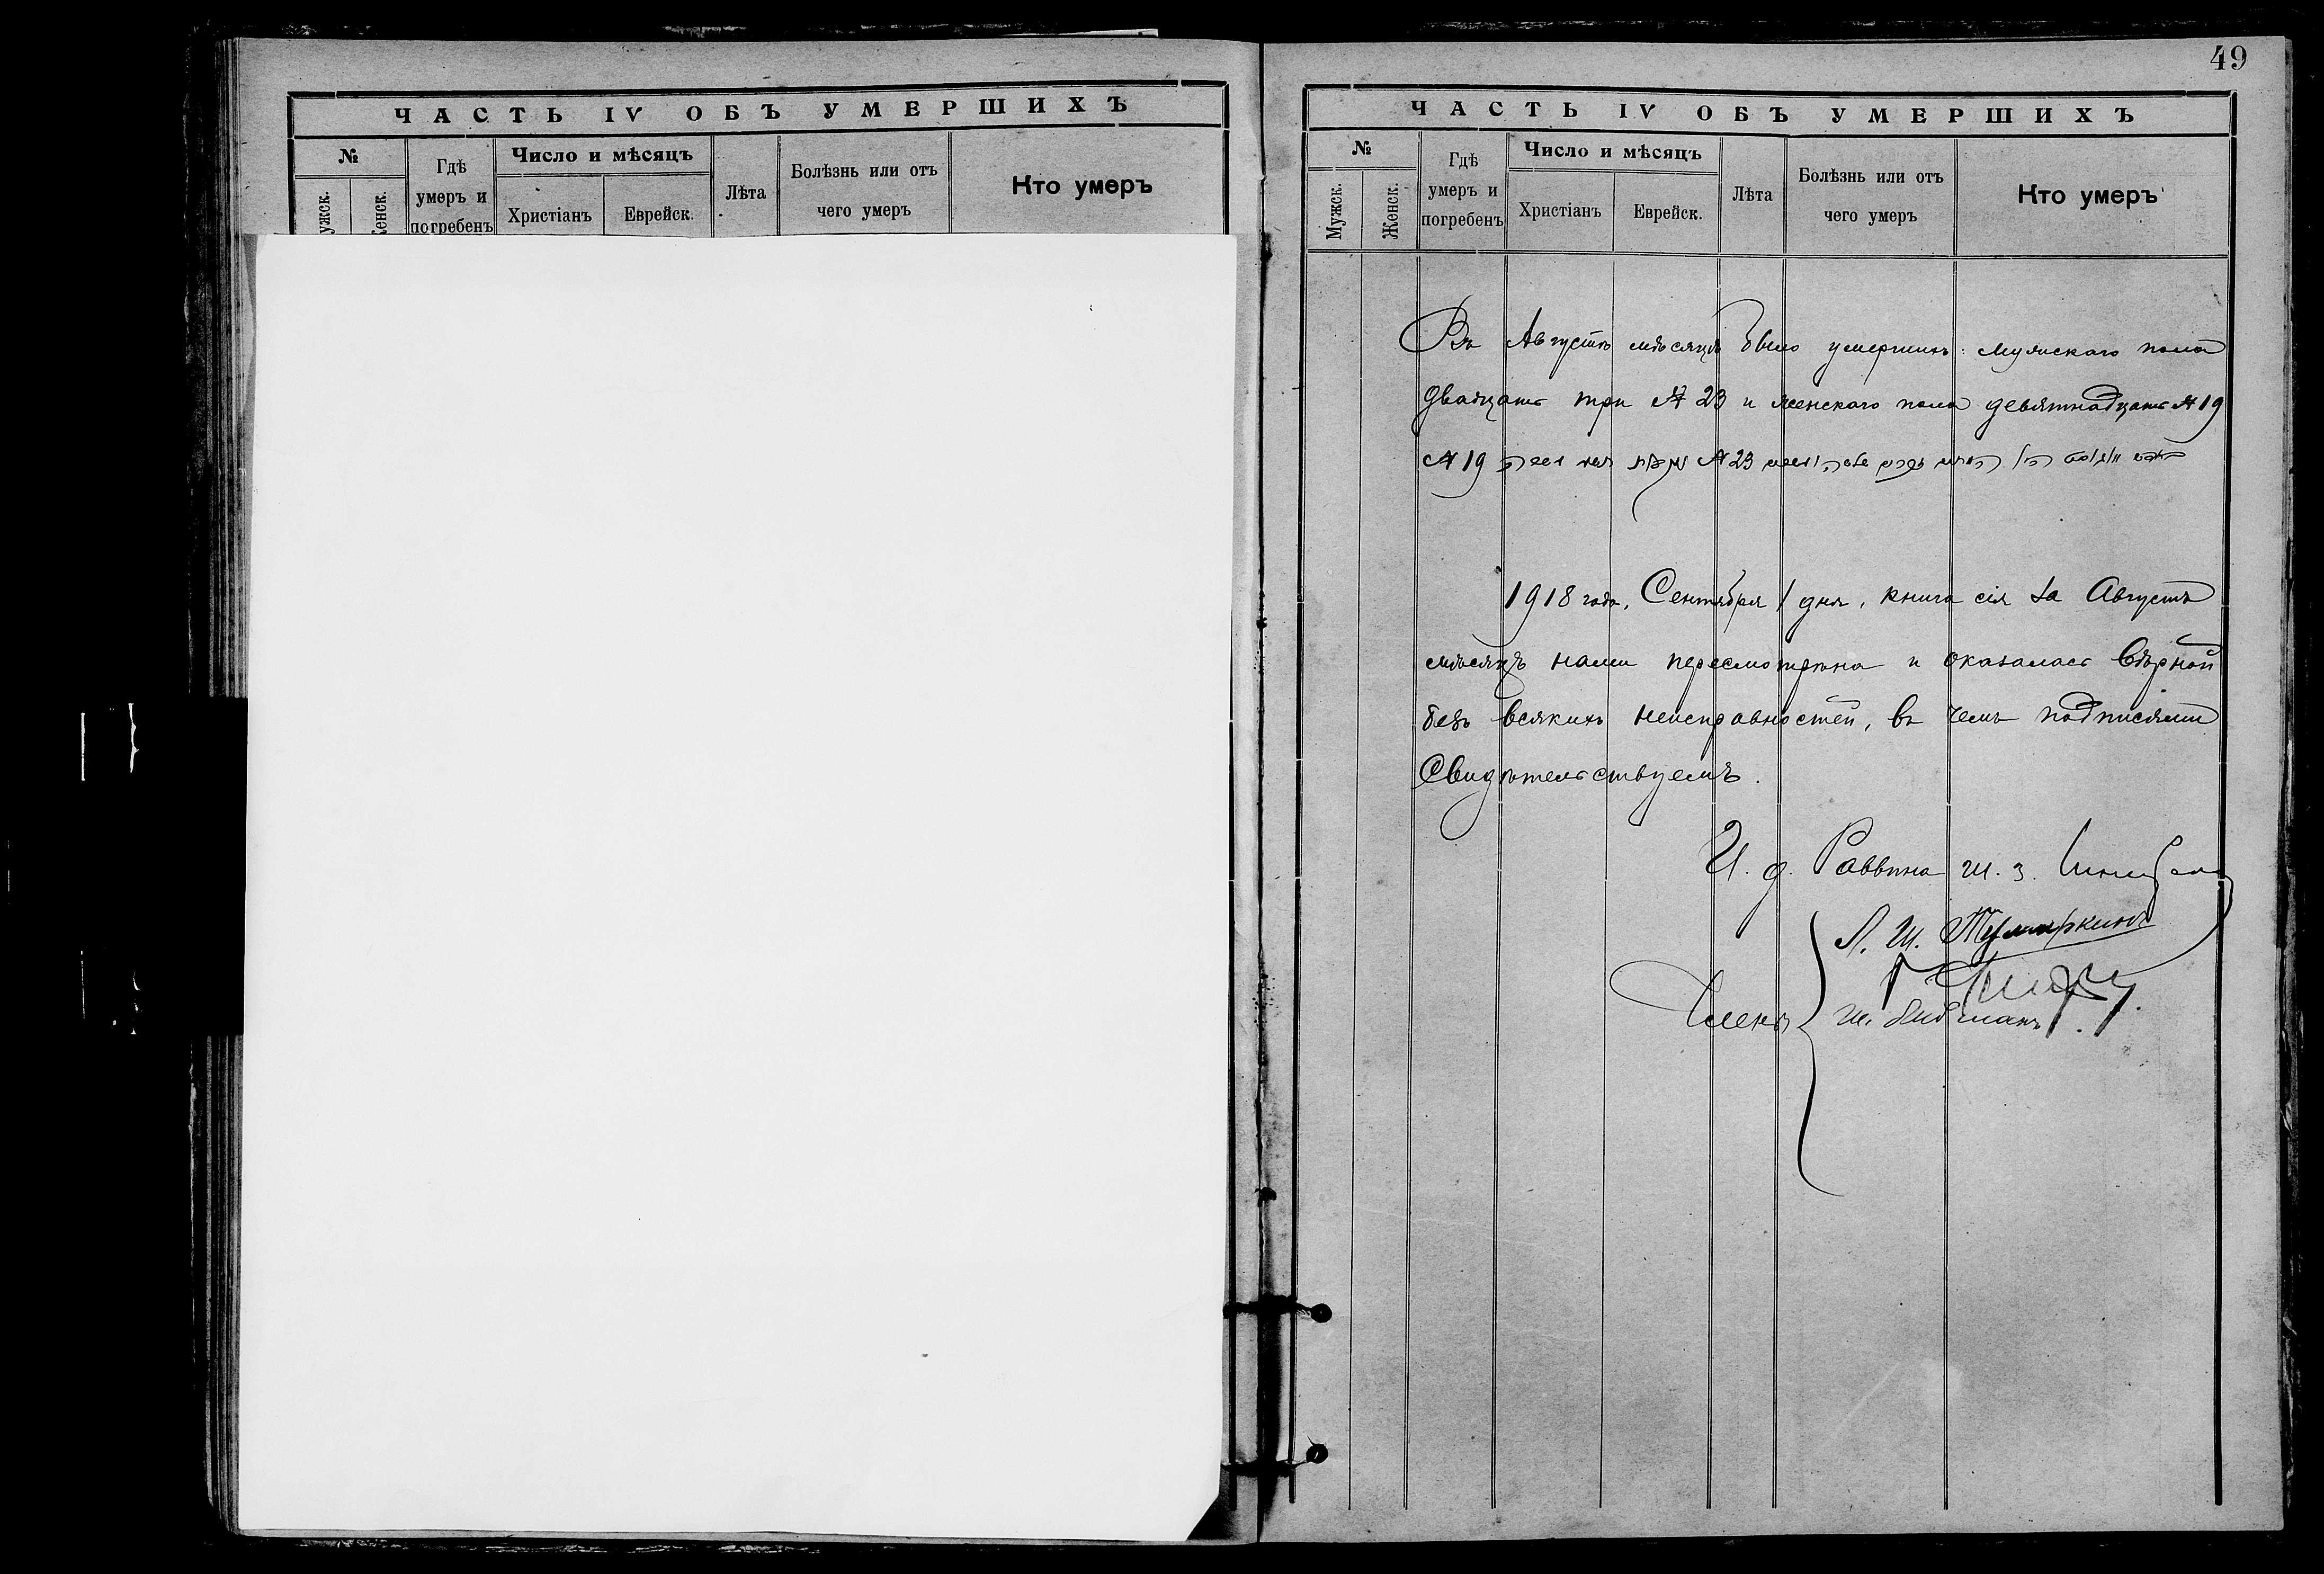 ЧАСТЬ IV ОБЪ УМЕРШИХЪ
№
Гдѣ умеръ и погребенъ
Число и мѣсяцъ
Христіанъ
Еврейск.
Лѣта
Болѣзнь или отъ чего умеръ
Кто умеръ
49
ЧАСТЬ IV ОБЪ УМЕРШИХЪ
№
Мужск.
Женск.
Гдѣ умеръ и погребенъ
Число и мѣсяцъ
Христіанъ
Еврейск.
Лѣта
Болѣзнь или отъ чего умеръ
Кто умеръ
Въ Августѣ мѣсяцѣ было умершихъ: мужскаго пола
двадцать три № 23 и женскаго пола девятнадцать № 19
№ 19 № 23
1918 года, Сентября 1 дня, книга сія за Августъ
мѣсяцъ нами пересмотрѣна и оказалась вѣрной
безъ всякихъ неисправностей, въ чемъ подписями
Свидѣтельствуемъ.
И. д. Раввина Ш. З.
Л. Ш. Тумаркинъ
Члены
Ш.